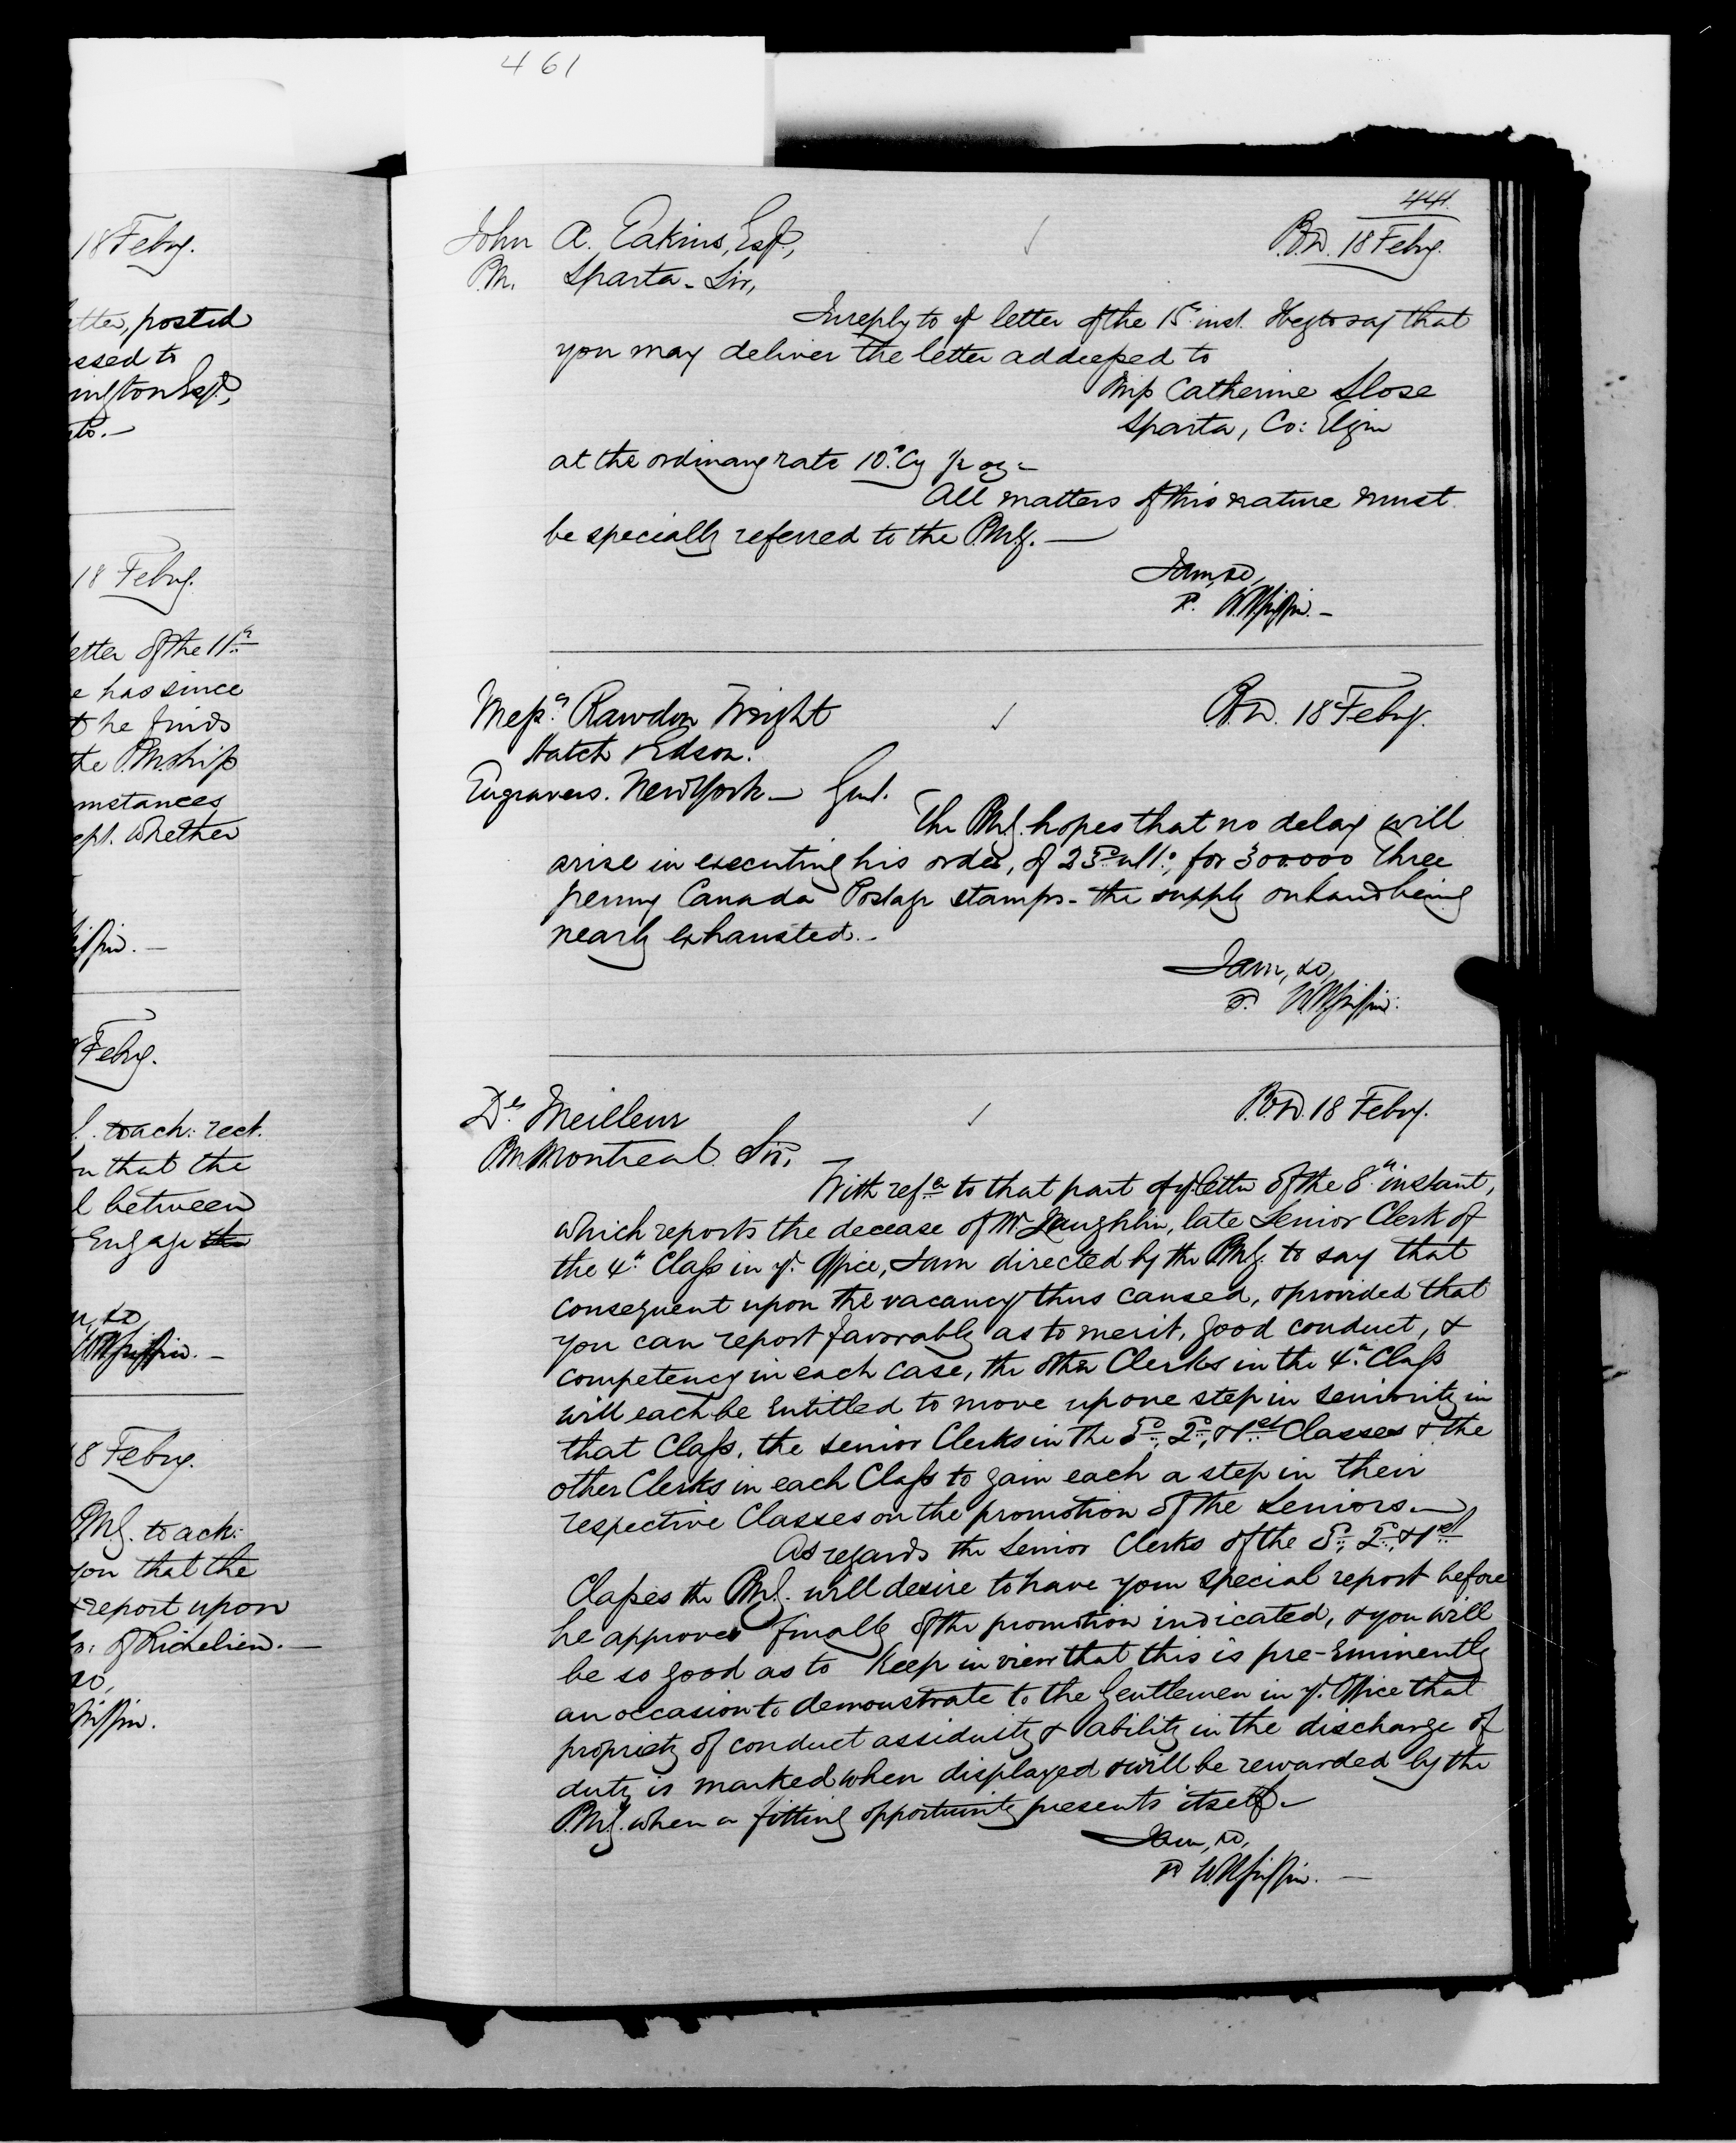 461
18 Feby.
etter, posted
essed to
ington Esqr,
to.—
18 Feby.
etter of the 11th
e has since
t he finds
the P.M.ship
mstances
ept. whether
iffin.—
Feby.
to ach: rect.
n that the
l between
Engage the
m, &c,
W.H.Griffin.—
8 Feby.
P.M.G. to ack:
you that the
& report upon
Co: of Richelieu.—
&c,
Griffin.
441.
John A. Eakins, Esqr., ✓ P.O.D. 18 Feby.
P.M. Sparta - Sir,
In reply to yr letter of the 15th inst. I beg to say that
you may deliver the letter addressed to
Miss Catherine Slose
Sparta, Co: Elgin
at the ordinary rate 10d Cy ½ oz-
All matters of this nature must
be specially referred to the P.M.G.—
I am, &c,
W.H.Griffin.-
Messrs Rawdon Wright ✓ P.O.D. 18 Feby.
Hatch & Edson.
Engravers. New York — Gent.
The P.M.G. hopes that no delay will
arise in executing his order, of 23d ulto, for 300.000 Three
penny Canada Postage stamps - the supply on hand being
nearly exhausted.-
I am, &c,
W.H.Griffin.
Dr Meilleur ✓ P.O.D. 18 Feby.
P.M. Montreal. Sir,
With refce to that part of yr letter of the 8th instant,
which reports the decease of Mr Laughlin, late Senior Clerk of
the 4th Class in yr Office, I am directed by the P.M.G. to say that
consequent upon the vacancy thus caused, & provided that
you can report favorably as to merit, good conduct, &
competency in each case, the other Clerks in the 4th Class
will each be entitled to move up one step in seniority in
that Class, the senior Clerks in the 3d, 2d, & 1st Classes & the
other Clerks in each Class to gain each a step in their
respective Classes on the promotion of the Seniors.—
As regards the Senior Clerks of the 3d, 2d, & 1st
Classes the P.M.G. will desire to have your special report before
he approves finally of the promotion indicated, & you will
be so good as to keep in view that this is pre-eminently
an occasion to demonstrate to the Gentlemen in yr. Office that
propriety of conduct assiduity & ability in the discharge of
duty is marked when displayed & will be rewarded by the
P.M.G. when a fitting opportunity presents itself.-
I am, &c,
W.H.Griffin.—